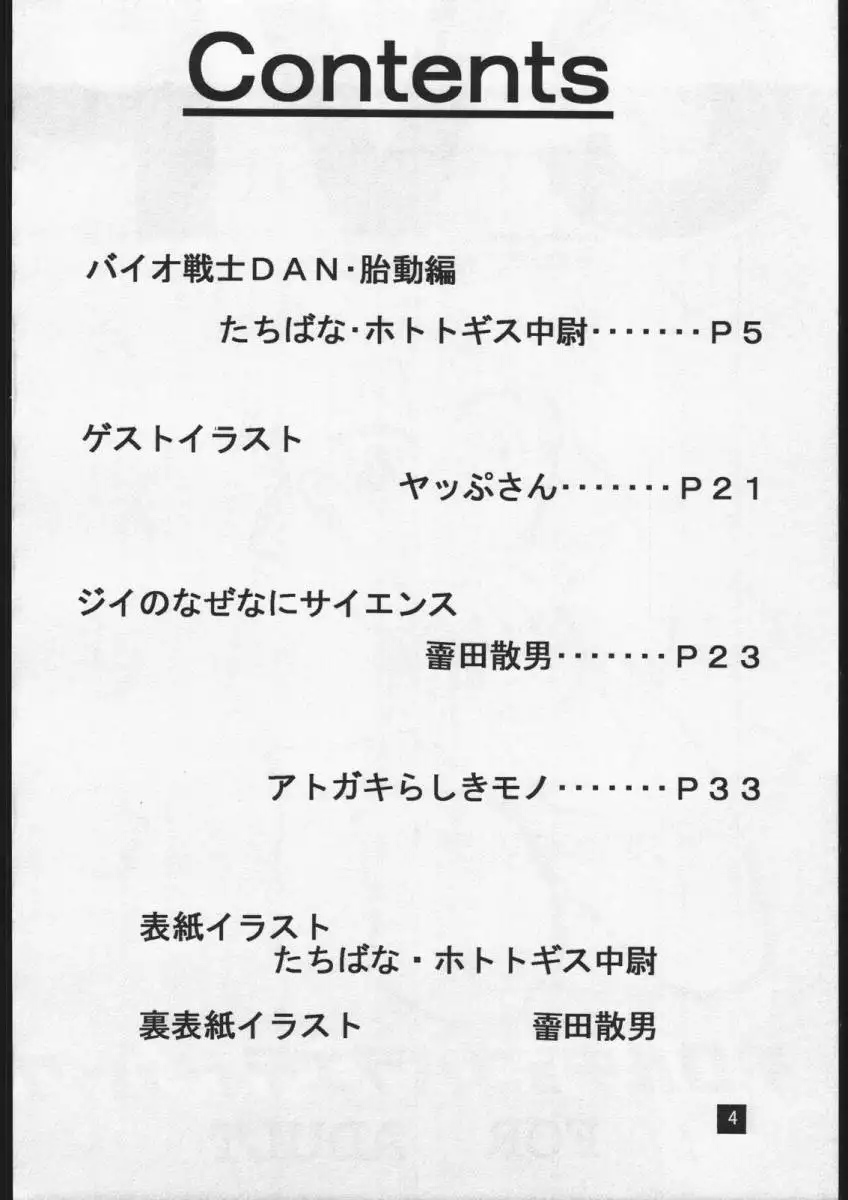 Contents
バイオ戦士ＤＡＮ・胎動編
たちばな・ホトトギス中尉・・・・・・・Ｐ５
ゲストイラスト
ヤッぷさん・・・・・・・Ｐ２１
ジイのなぜなにサイエンス
田散男・・・・・・・Ｐ２３
アトガキらしきモノ・・・・・・・Ｐ３３
表紙イラスト
たちばな・ホトトギス中尉
裏表紙イラスト　田散男
4
FOR ADULT